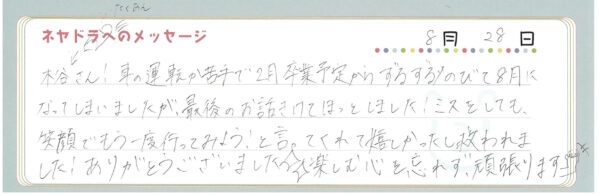 なくめん
ネヤドラへのメッセージ
8月 28日
木谷さん！車の運転が苦手で2月卒業予定からずるずるのびて8月に
なってしまいましたが、最後のお話きけてほっとしました！ミスをしても、
笑顔でもう一度行ってみよう！と言ってくれて嬉しかったし救われま
した！ありがとうございました 楽しむ心を忘れず、頑張ります